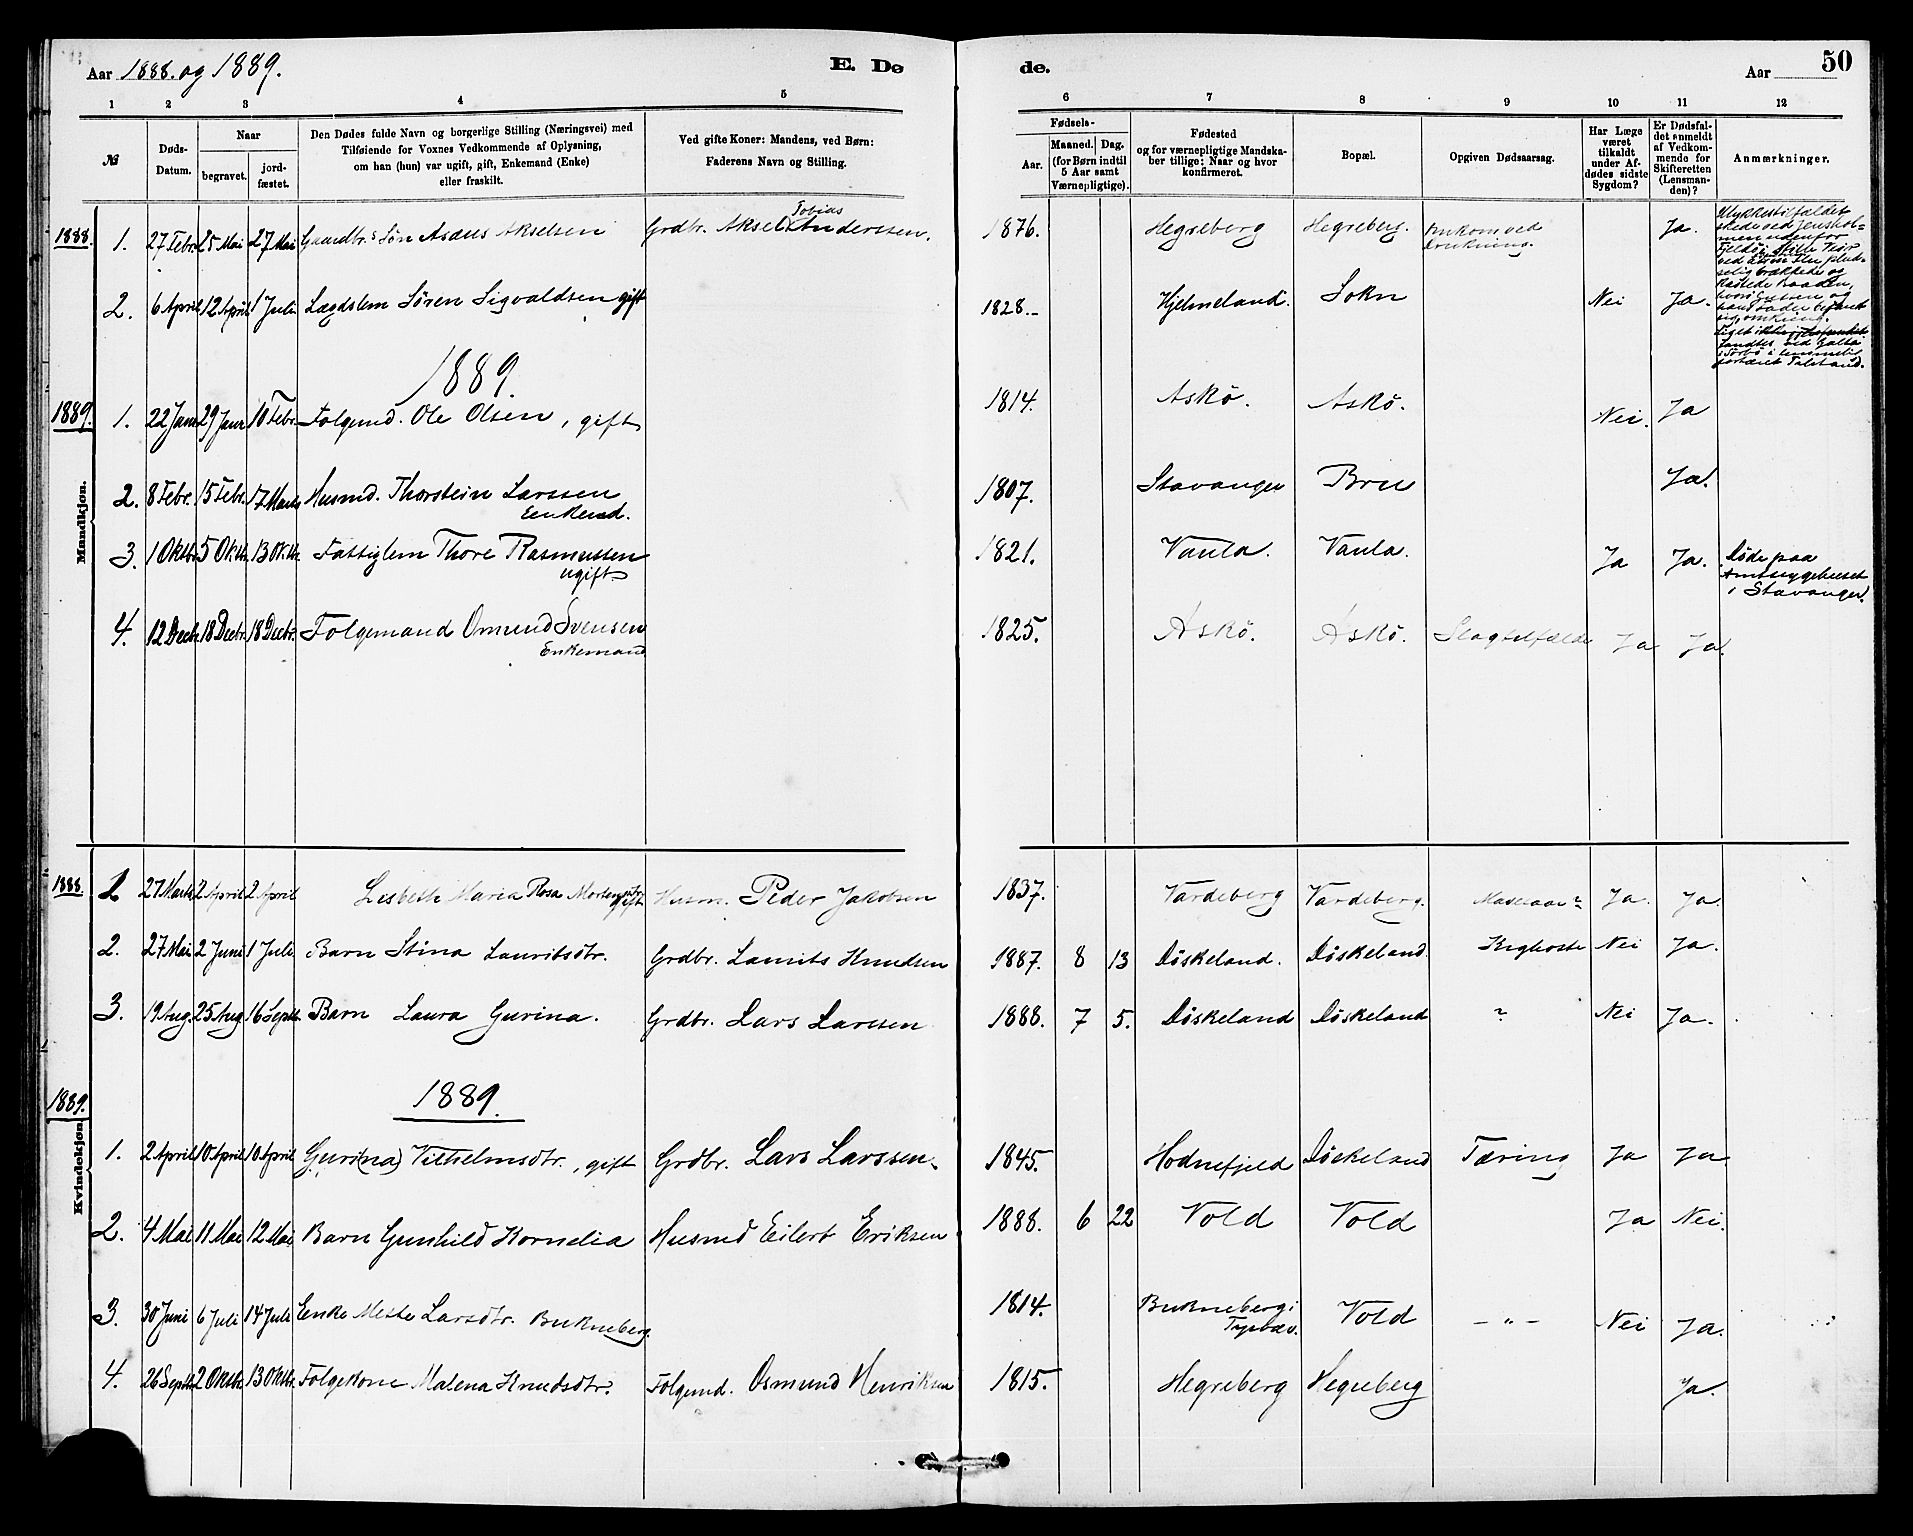 Aar 1888. og 1889.
E. Dø
de.
Aar
50
1 2 3 4 5
6 7 8 9 10 11 12
№
Døds-Datum.
Naar
begravet.
jordfæstet.
Den Dødes fulde Navn og borgerlige Stilling (Næringsvei) med
Tilføiende for Voxnes Vedkommende af Oplysning,
om han (hun) var ugift, gift, Enkemand (Enke)
eller fraskilt.
Ved gifte Koner: Mandens, ved Børn:
Faderens Navn og Stilling.
Fødsels-
Aar.
Maaned. Dag.
(for Børn indtil
5 Aar samt
Værnepligtige).
Fødested
og for værnepligtige Mandska-
ber tillige: Naar og hvor
konfirmeret.
Bopæl.
Opgiven Dødsaarsag.
Har Læge
været
tilkaldt
under Af-
dødes sidste
Sygdom?
Er Dødsfal-
det anmeldt
af Vedkom-
mende for
Skifteretten
(Lensman-
den)?
Anmærkninger.
Mandkjøn.
1888. 1. 27 Febr. 25 Mai 27 Mai Gaardbr.s Søn Asaus Akselsen Grdbr. Aksel Tobias Anderssen. 1876. Hegreberg Hegreberg. Omkom ved Drukning. Ja.
Ulykkestilfældet
skede ved Jenshol-
men udenfor
Fjeldøi
ved
selig brækkede og
Baaden,
og
hans Fader befandt
sig, omkring.
Liget
Landtes ved
i Sørbø i temmelig
fortæret Tilstand.
2. 6 April 12 April 1 Juli Lægdslem Sören Sigvaldsen gift 1828.- Hjelmeland. Sokn Nei Ja.
1889.
1889. 1. 22 Janr 29 Janr 10 Febr. Folgemd. Ole Olsen, gift 1814. Askö. Askö. Nei. Ja
2. 8 Febr. 15 Febr. 17 Marts Husmd. Thorstein Larssen Enkemd. 1807. Stavanger Bru Ja.
3. 1 Oktbr. 5 Oktb. 13 Oktb. Fattiglem Thore Rasmussen ugift 1821. Vaula. Vaula. Ja Ja. Døde paa
Amtssygehuset
i Stavanger.
4. 12 Decb. 18 Decbr. 18 Decbr. Folgemand Omund Svensen Enkemand 1825. Askö. Askö. Slagtilfælde Ja Ja.
Kvindekjøn.
1888. 1 27 Marts 2 April 2 April Lisbeth Maria Rosa Mortensdtr. gift Husm. Peder Jakobsen 1837. Vardeberg Vardeberg. Ja. Ja.
2. 27 Mai 2 Juni 1 Juli Barn Stina Lauritsdtr. Grdbr. Laurits Knudsen 1887. 8 13 Döskeland. Döskeland. Kighoste Nei Ja.
3. 19 Aug. 25 Aug 16 Septb. Barn Laura Gurina. Grdbr. Lars Larssen 1888. 7 5. Döskeland Döskeland ? Nei Ja.
1889.
1889. 1. 2 April 10 April 10 April Guri(na) Vilhelmsdtr., gift Grdbr. Lars Larssen. 1845. Hodnefjeld Döskeland Tæring Ja Ja
2. 4 Mai 11 Mai 12 Mai Barn Gunhild Kornelia Husmd Eilert Eriksen 1888. 6 22 Vold Vold Ja Nei.
3. 30 Juni 6 Juli 14 Juli Enke Mette Larsdtr. Bukneberg. 1814. Bukneberg i Tysvær. Vold — " — Nei Ja.
4. 26 Septb. 2 Oktbr. 13 Oktbr. Folgekone Malena Knudsdtr. Folgemd. Osmund Henriksen 1815. Hegreberg Hegreberg Ja.